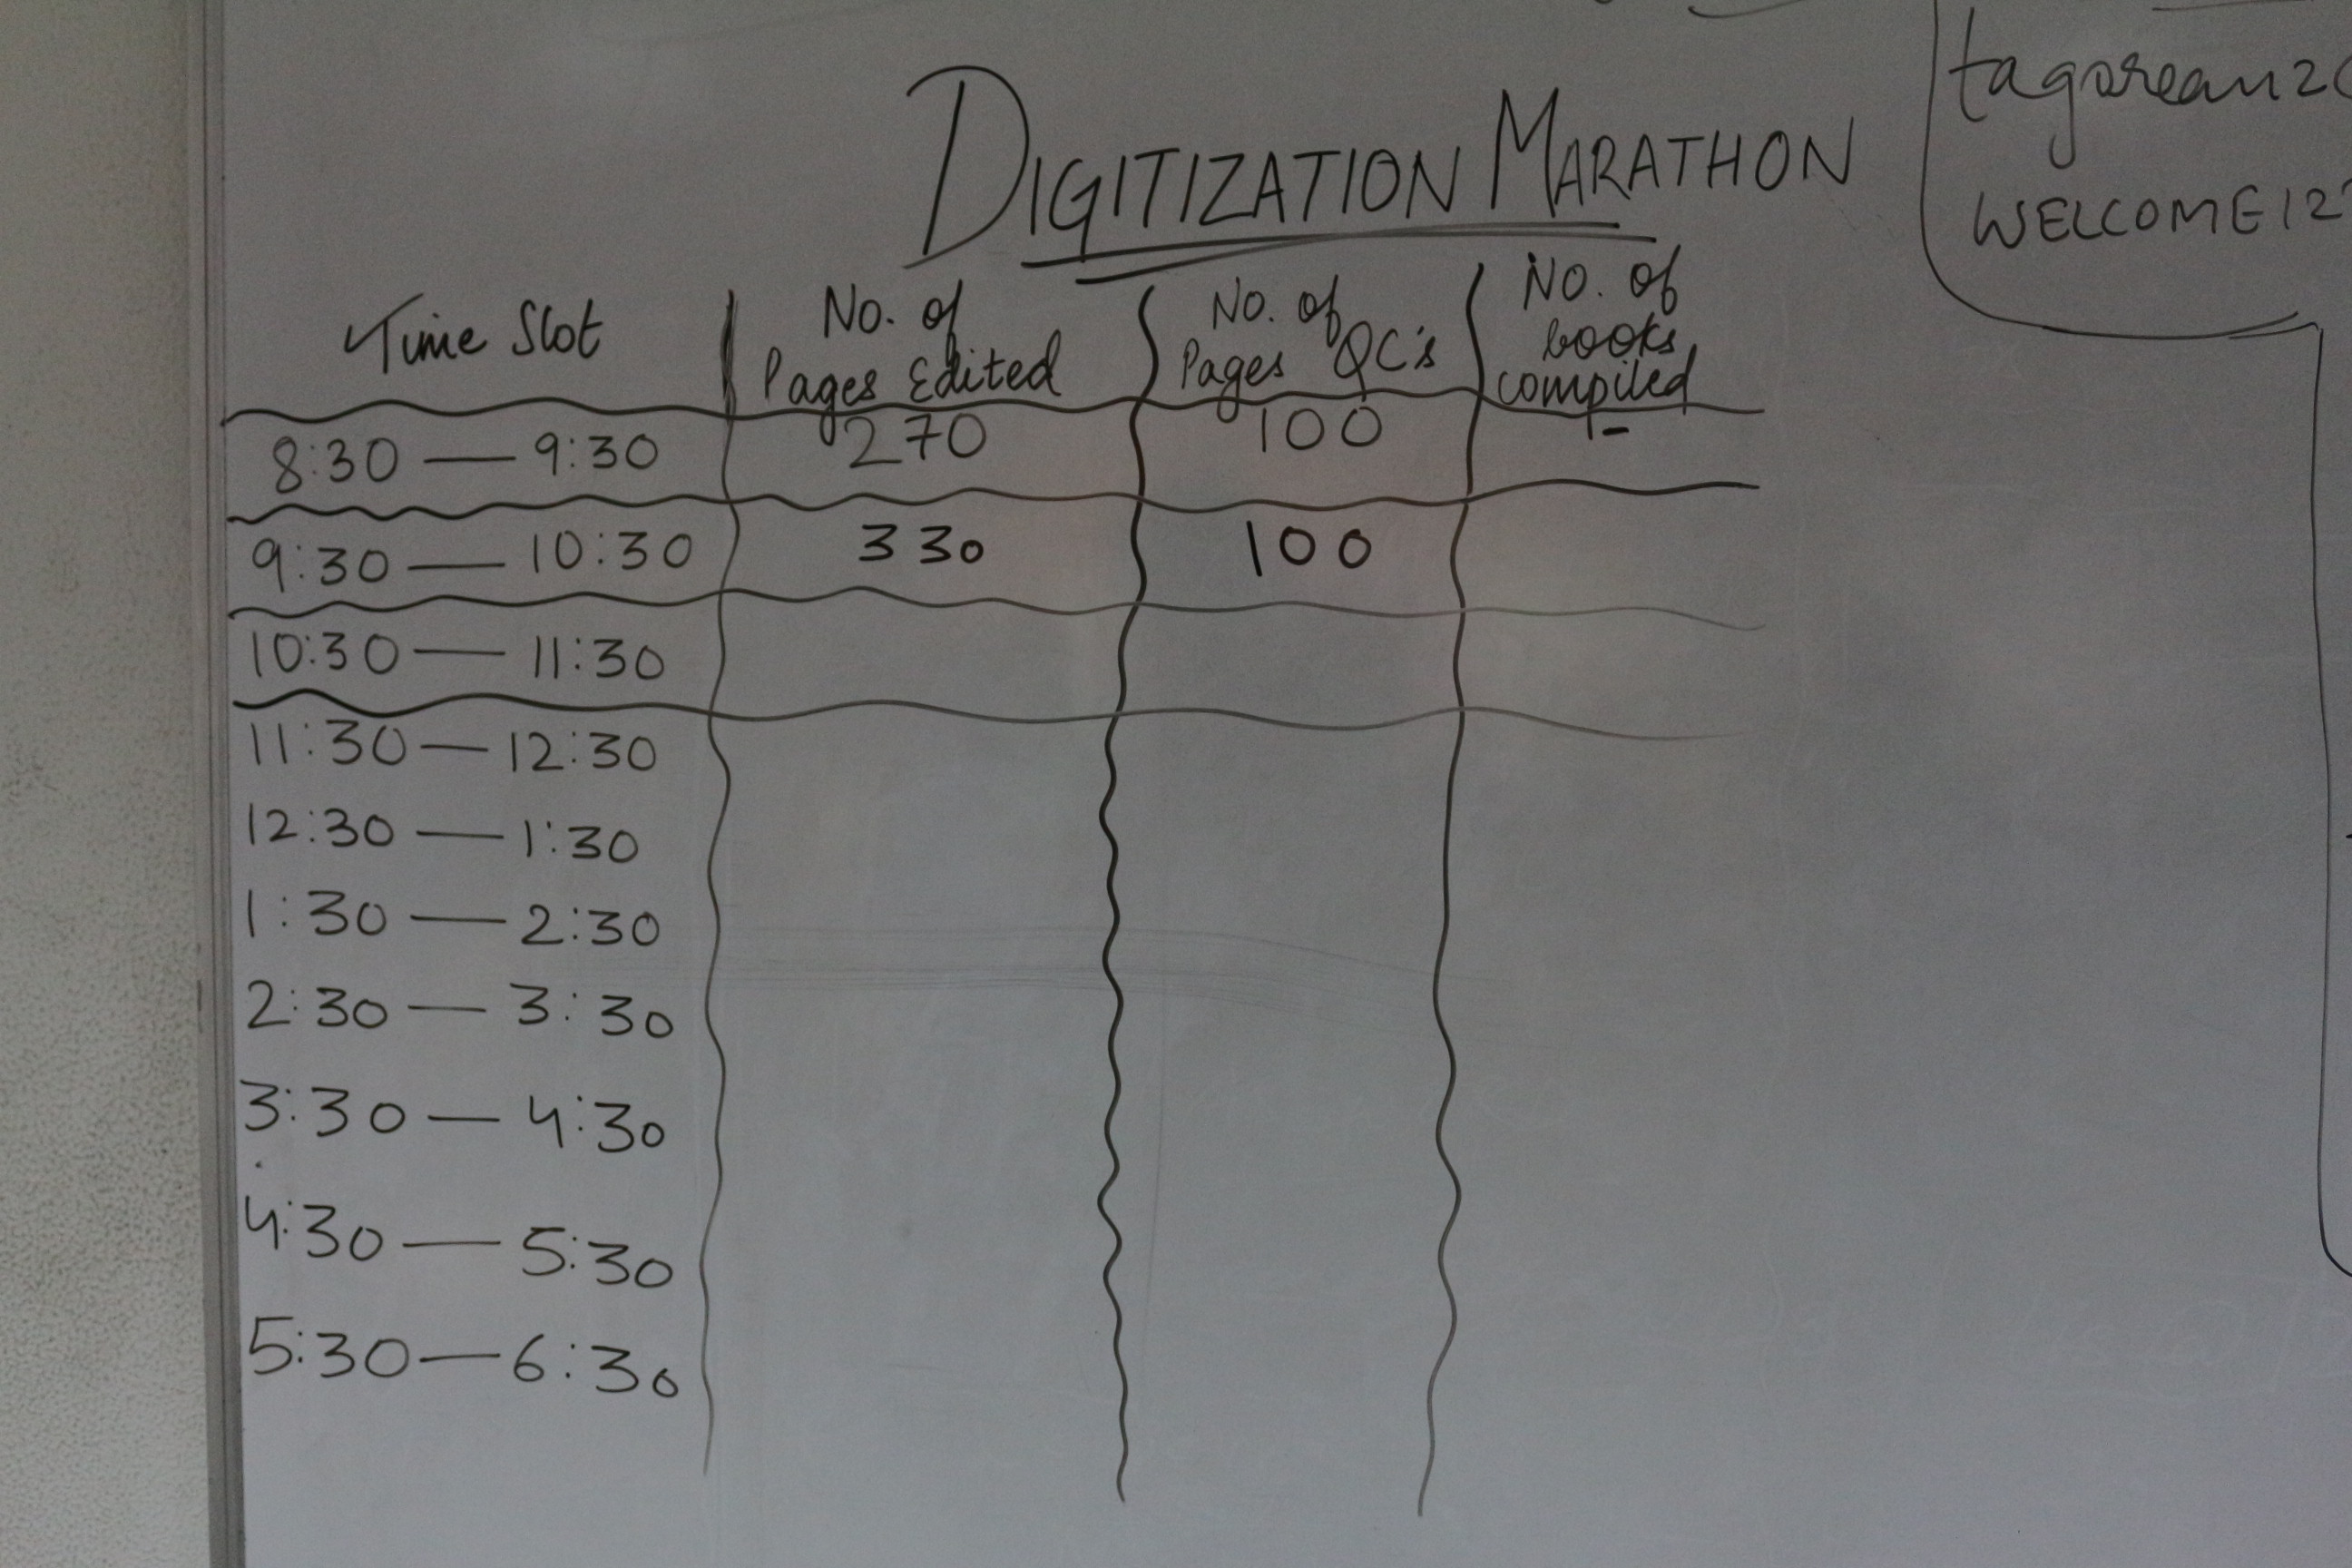 DIGITIZATION MARATHON
Time Slot
No. of
Pages Edited
No. of
Pages QC's
No. of
books
compiled
8:30 — 9:30 270 100 -
9:30 — 10:30 330 100
10:30 — 11:30
11:30 — 12:30
12:30 — 1:30
1:30 — 2:30
2:30 — 3:30
3:30 — 4:30
4:30 — 5:30
5:30 — 6:30
tagorean2
WELCOME12